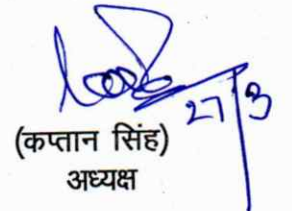 27/3
(कप्तान सिंह)
अध्यक्ष